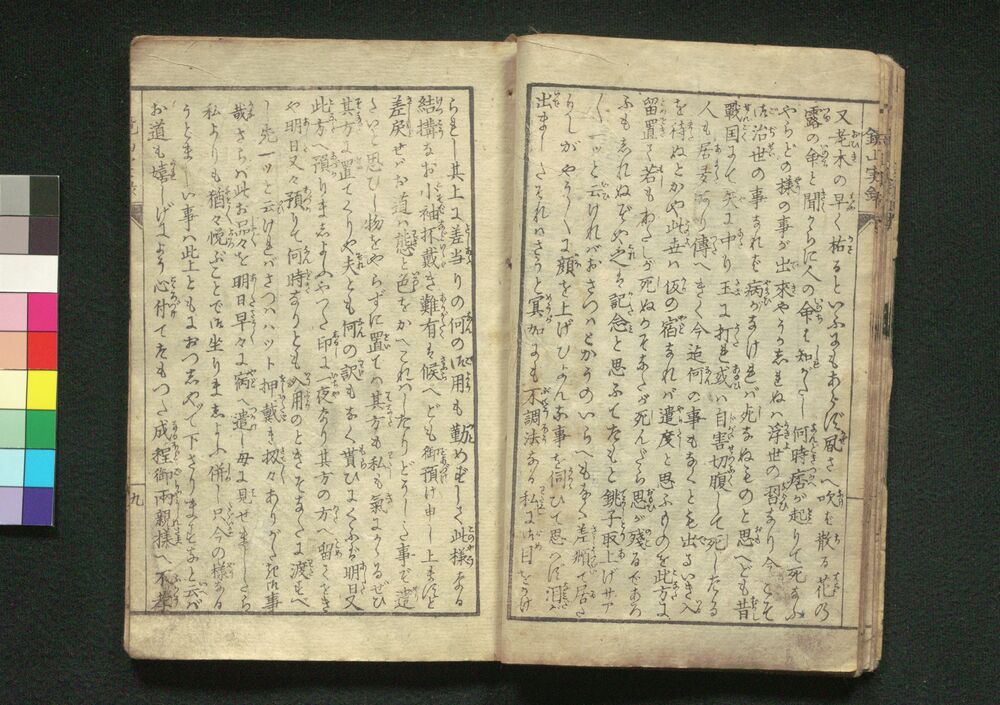 又老木の早く枯るといふにもあらず風さへ吹ば散る花の
露の命と聞からに人の命は知がたし何時癪が起りて死ふ
やらどの様の事が出来やうかしれぬハ浮世の習なり今こそ
御治世の事なれば病がなければ死なぬものと思へども昔
戦国にて矢に中り玉に打れ或ハ自害切腹して死したる
人も居ると聞傳へき今迚何の事もなくとも出るいき入
を待ぬとかや此世ハ仮の宿なれバ遣度と思ふものを此方に
留置て若もわたしが死ぬかそなたが死んだら思が残るであろ
ふもしれぬぞや之を記念と思ふてたもと銚子取上げサア
一ツと云けれバおさつハとかうのいらへもなく差俯て居た
りしがやう〳〵に顔を上げひょんな事を伺ひて思はず泪が
出ましたそれハさうと冥加にも不調法なる私に御目をかけ
られし其上に差当りの何の御用も勤めずして此様なる
結構なお小袖抔戴き難有は候へども御預け申し上ますと
差戻せバお道ハ態と色をかへこれハしたりどうした事ぞ遣
たいと思ひし物をやらずに置てハ其方も私も氣にかゝるぜひ
其方に置てくりや夫とも何の訳もなく貰ひにくふバ明日又
此方へ預りましよふやつた印に一夜なり其方の方へ留ておき
や明日又々預りて何時なりとも入用のときそなたに渡すべ
し先一ツと云けれバさつハハット押戴き扨々ありがたき御事
哉さらバ此お品々を明日早々に病へ遣し母に見せましたら
私よりも猶々悦ぶことで御坐りましよふ併し只今の様なる
うとましい事ハ此上ともにおつしやつて下さりますなと云バ
お道も嬉しげによう心付てたもつた成程御両親様へ不孝
九